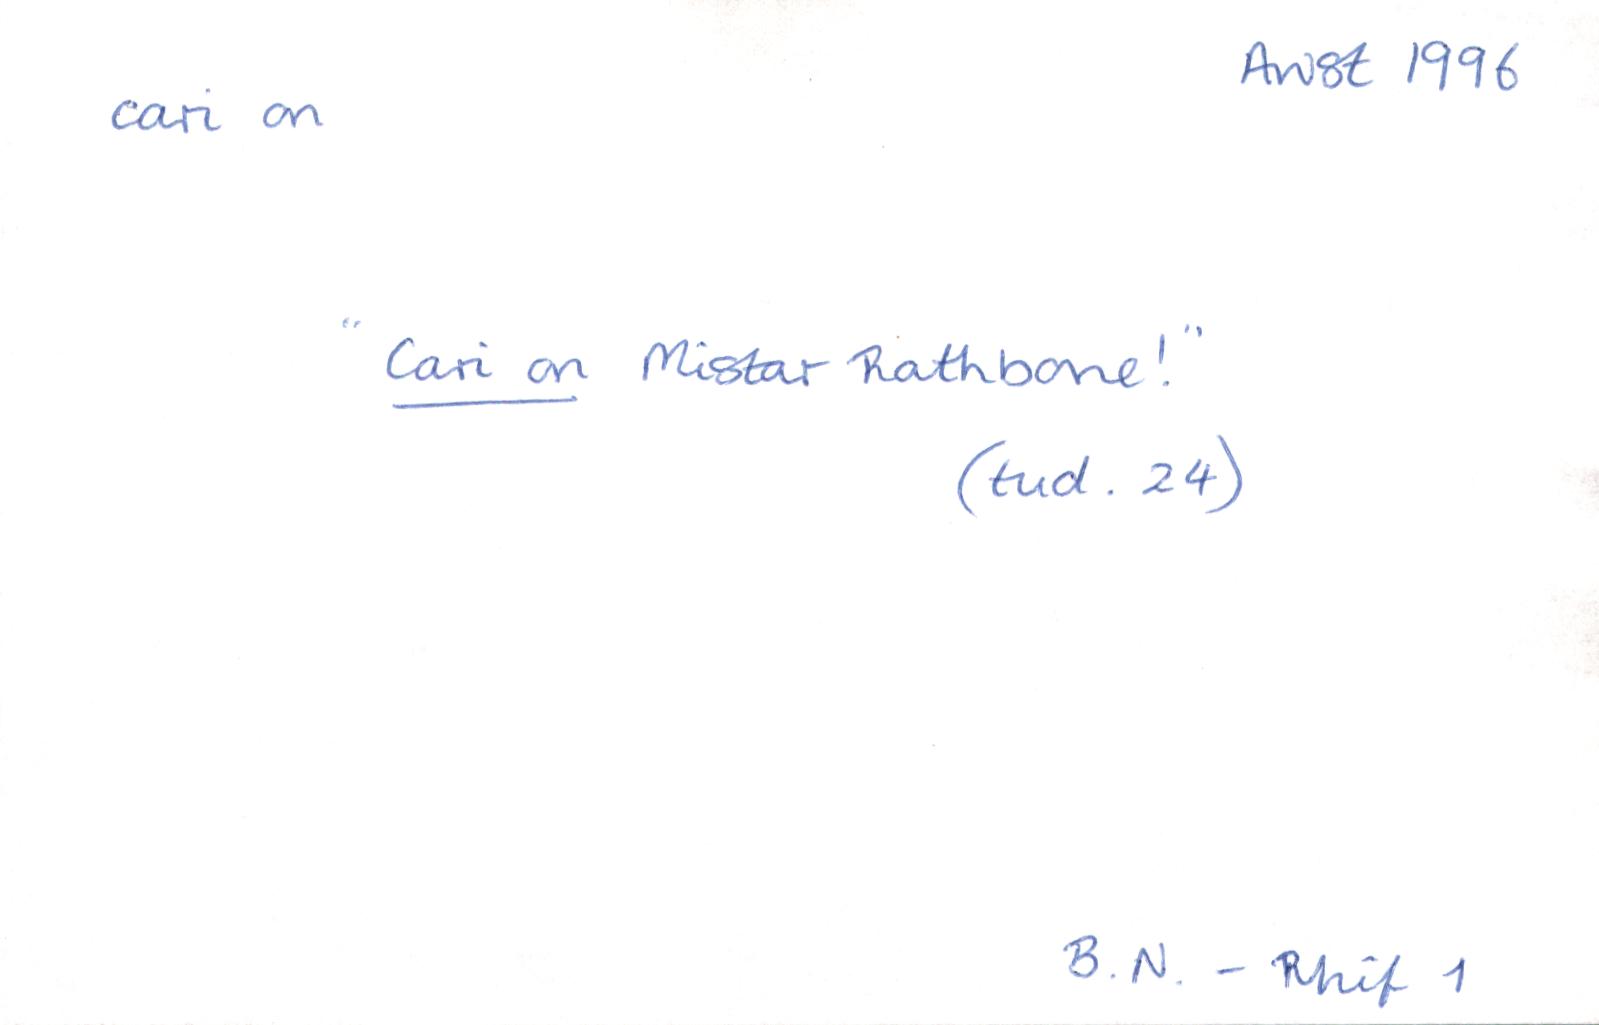 Awst 1996
cari on
"Cari on Mistar Rathbone!"
(tud. 24)
B.N. - Rhif 1